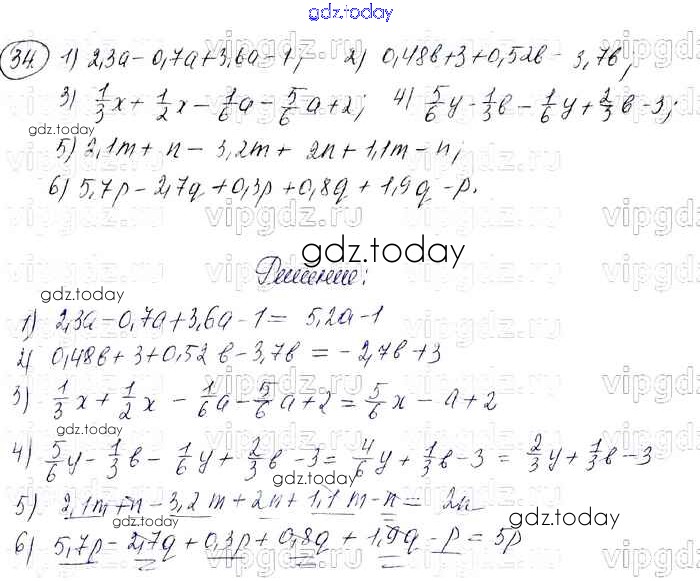 gdz.today
34. 1) 2,3a - 0,7a + 3,6a - 1; 2) 0,48в + 3 + 0,52в - 3,7в;
3) 1/3 x + 1/2 x - 1/6 a - 5/6 a + 2; 4) 5/6 y - 1/3 в - 1/6 y + 2/3 в - 3;
gdz.today
5) 2,1m + n - 3,2m + 2n + 1,1m - n;
6) 5,7p - 2,7q + 0,3p + 0,8q + 1,9q - p.
vipgdz.ru
gdz.today
Решение:
gdz.today
1) 2,3a - 0,7a + 3,6a - 1 = 5,2a - 1
2) 0,48в + 3 + 0,52в - 3,7в = -2,7в + 3
3) 1/3 x + 1/2 x - 1/6 a - 5/6 a + 2 = 5/6 x - a + 2
gdz.today
4) 5/6 y - 1/3 в - 1/6 y + 2/3 в - 3 = 4/6 y + 1/3 в - 3 = 2/3 y + 1/3 в - 3
5) 2,1m + n - 3,2m + 2n + 1,1m - n = 2n
gdz.today gdz.today
6) 5,7p - 2,7q + 0,3p + 0,8q + 1,9q - p = 5p
gdz.today